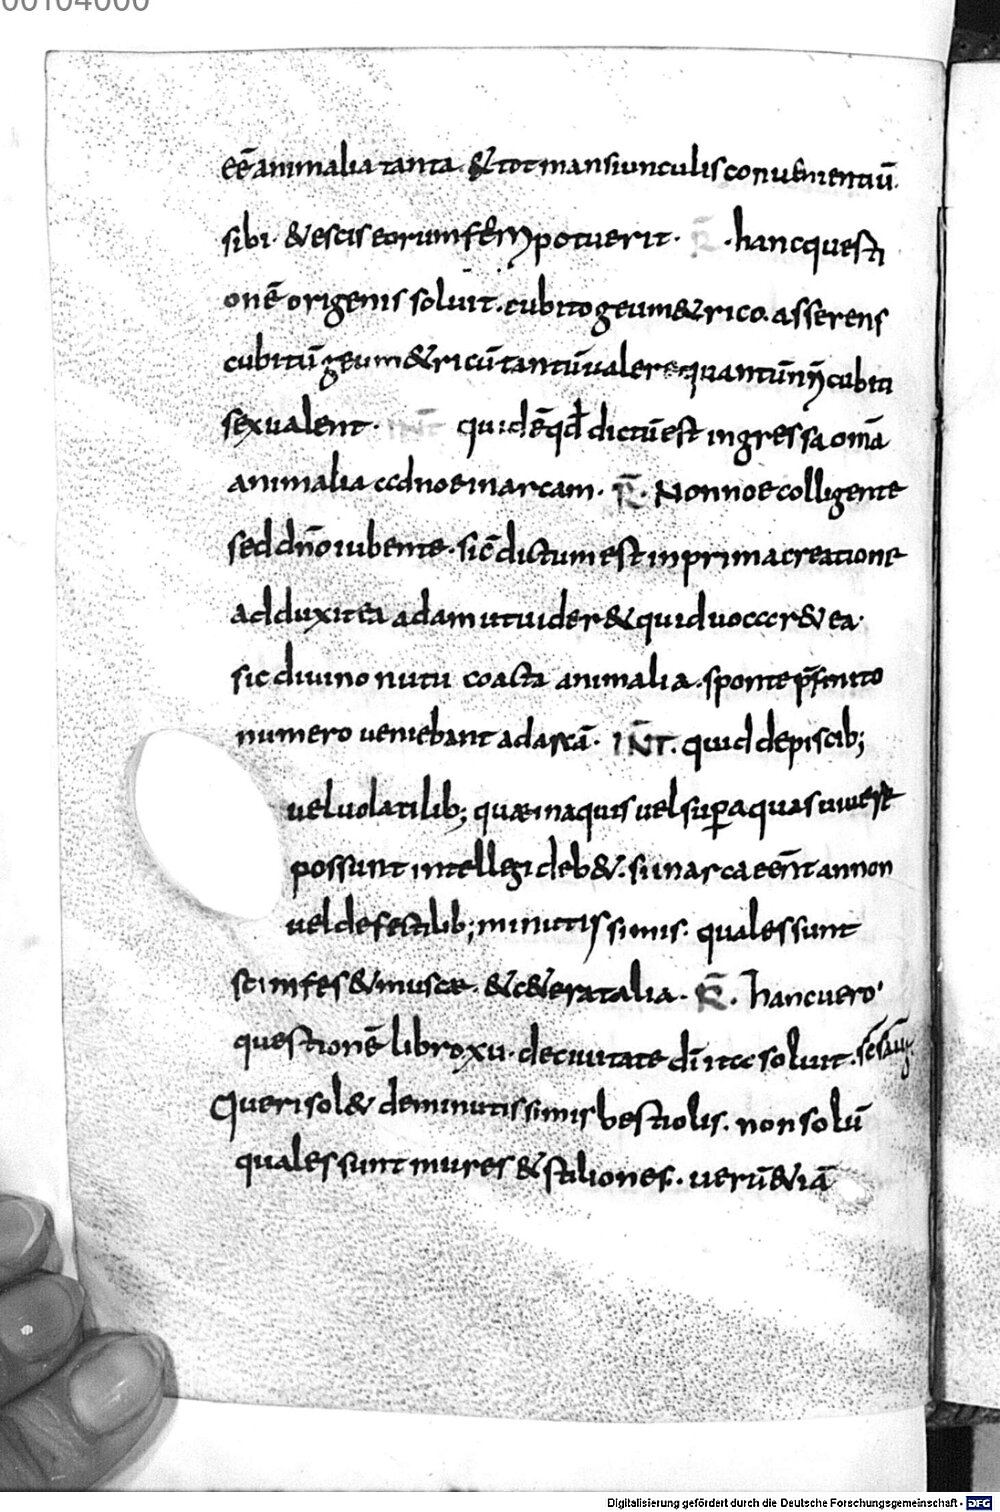 00104000
eē animalia tanta. & tot mansiunculis convenientiū
sibi. & escis eorum ferri potuerit. R̄. hanc questi
onē origenis soluit. cubito geum&rico. asserens
cubitū geum&ricū tantū valere quantū nr̄i cubiti
sex valent. INT̄ quid ē qd̄ dictū est ingressa om̄a
animalia ad noe in arcam. R̄. Non noe colligente
sed dn̄o iubente. sic̄ dictum est in prima creatione
adduxit ea adam ut uider& quid uocar& ea.
sic divino nutu coacta animalia. sponte p̄finito
numero veniebant ad arcā. IN̄T. quid de piscib;
vel volatilib; quæ in aquis vel sup aquas vivere
possunt intellegi deb&. si in arca eēnt an non
vel de festilib; minutissimis. quales sunt
scinifes & muscæ. & c&era talia. R̄. hanc vero
questionē libro xv. de civitate dī ita soluit. sc̄s aūg:
Queri sol& de minutissimis bestiolis. non solū
quales sunt mures & stiliones. verū &iā
Digitalisierung gefördert durch die Deutsche Forschungsgemeinschaft - DFG